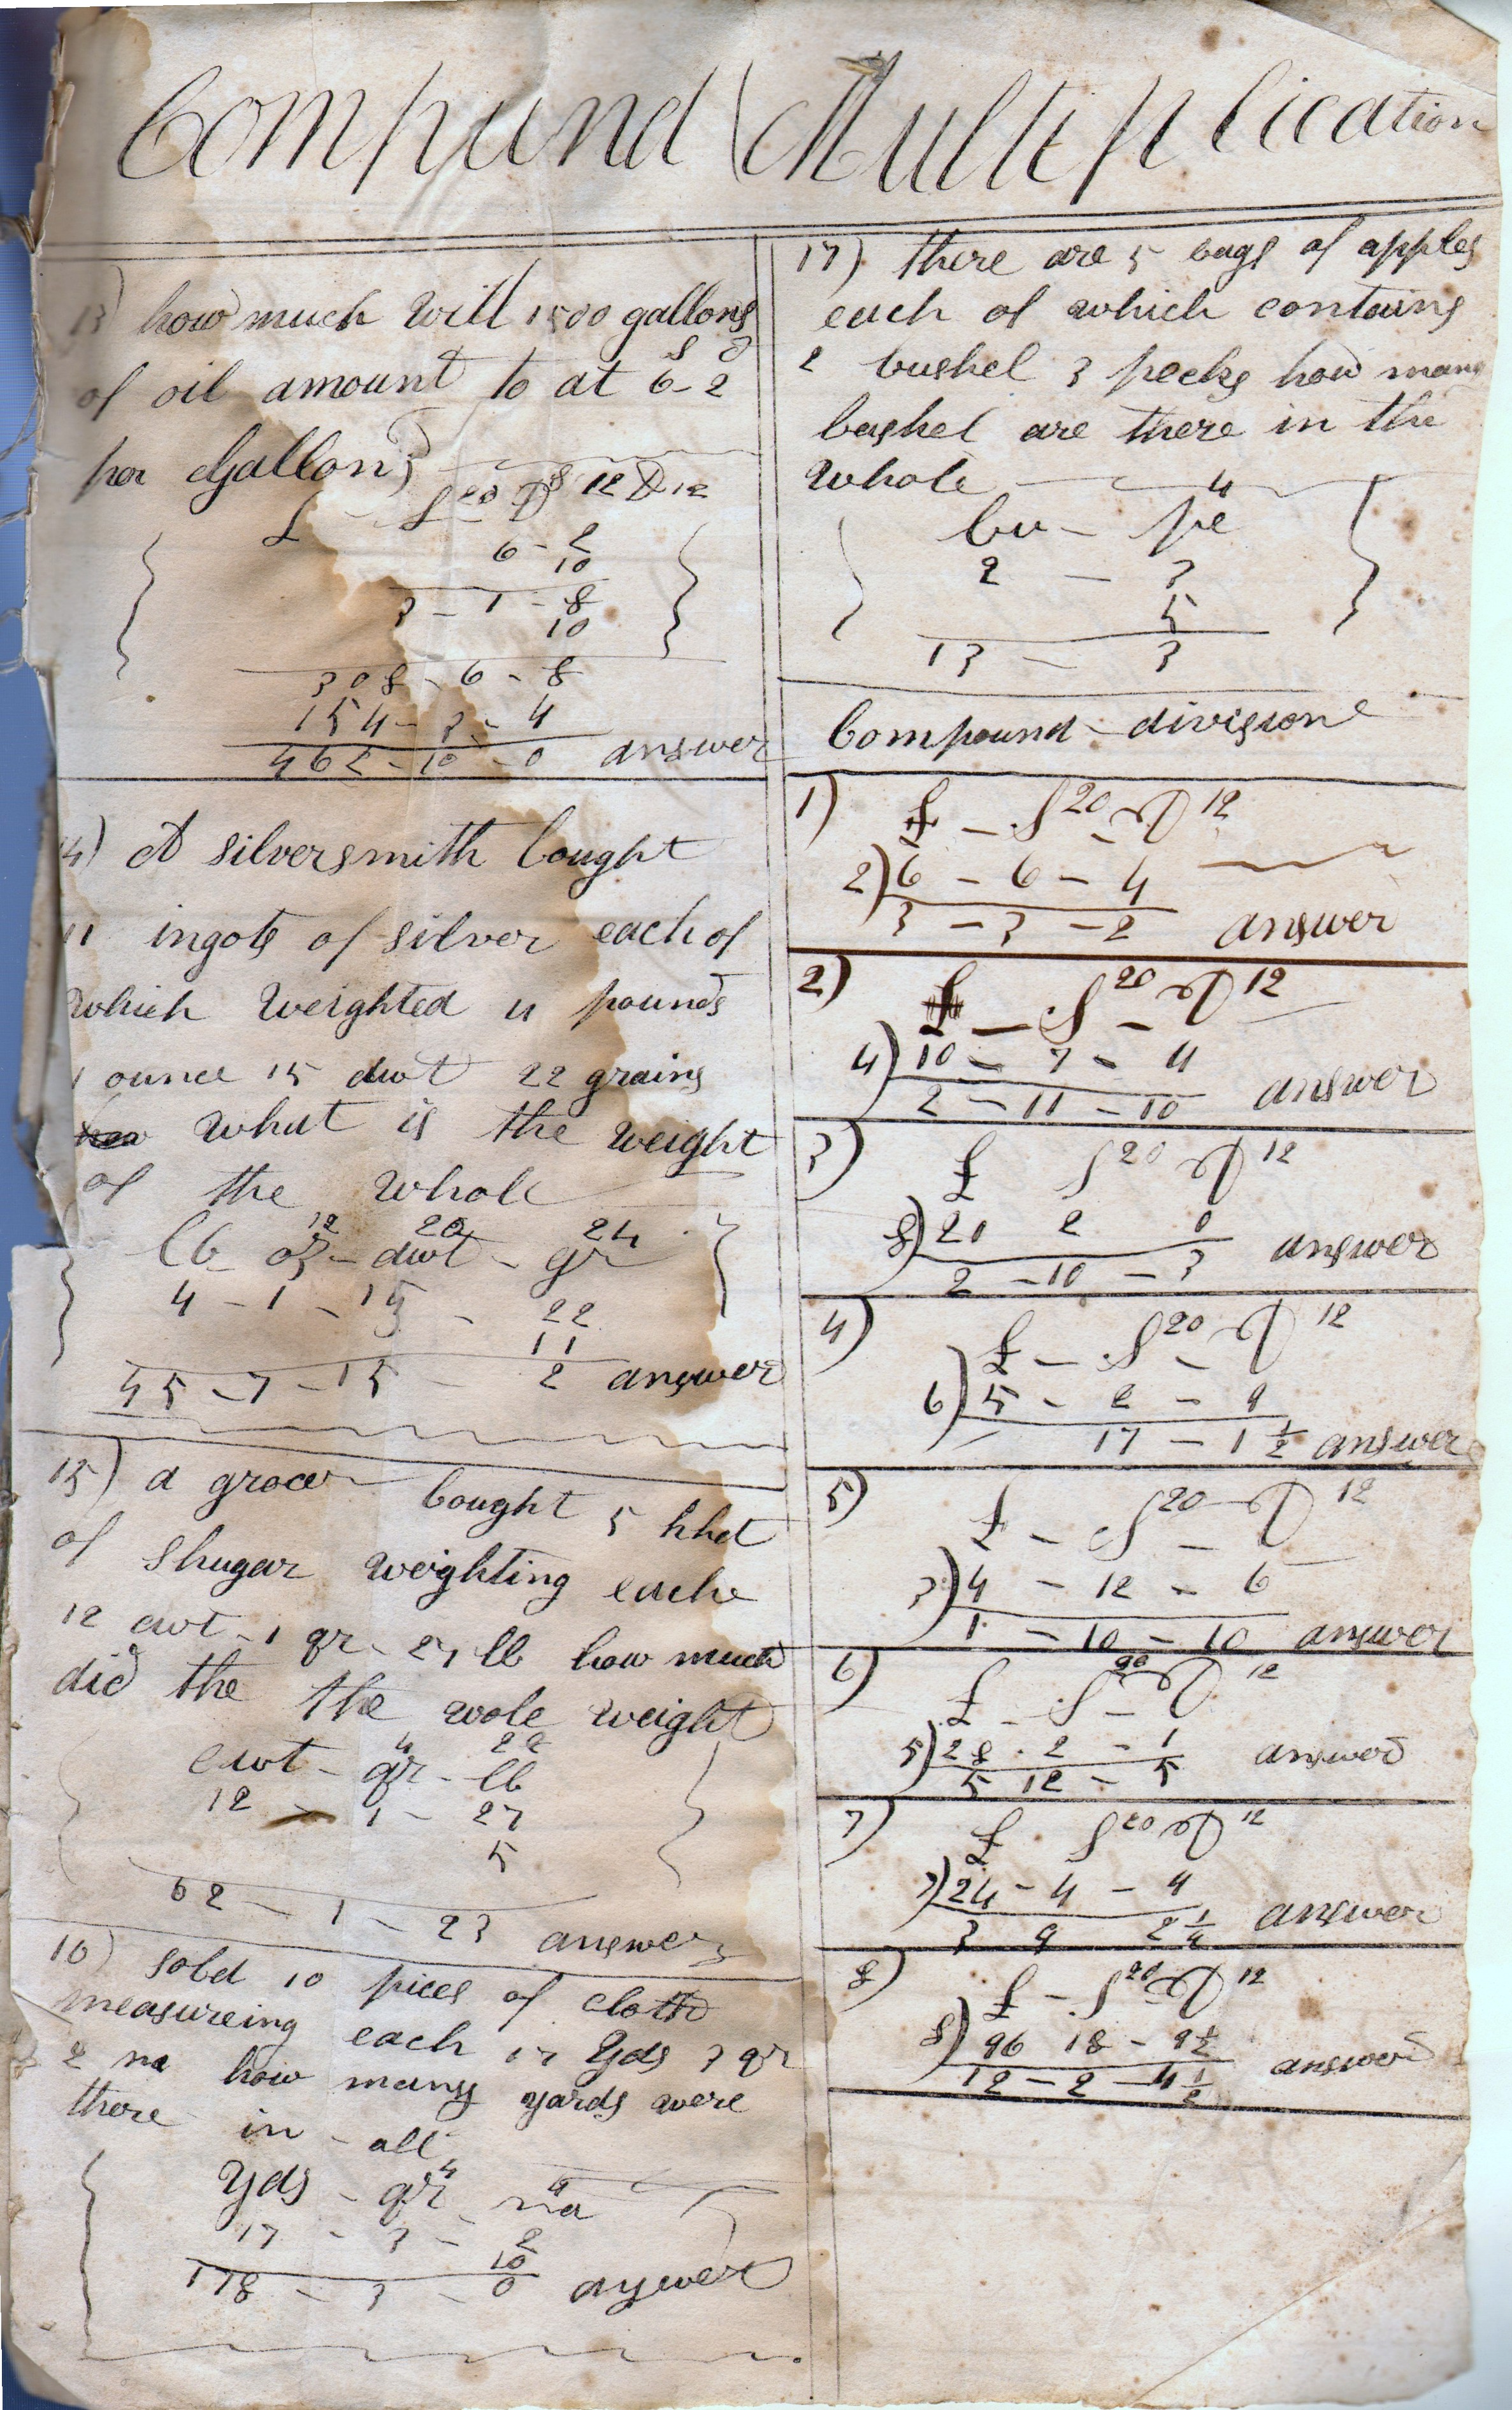 Compund Multiplication
13) how much will 1500 gallons
s d
of oil amount to at 6-2
per Gallon
£ - S 20 D 12
6 - 2
10
3 - 1 - 8
10
308 - 6 - 8
154 - 3 - 4
462 - 10 - 0 answer
14) A silversmith bought
11 ingots of silver each of
which weighted 4 pounds
1 ounce 15 dwt 22 grains
what is the weight
of the whole
12 20 24
lb oz - dwt - gr
4 - 1 - 15 - 22
11
45 - 7 - 15 - 2 answer
15) a grocer bought 5 hhd
of Shugar weighting each
12 cwt - 1 qr - 27 lb how much
did the the wole weight
4 28
cwt - qr - lb
12 - 1 - 27
5
62 - 1 - 23 answer
16) sold 10 pices of cloth
measureing each 17 Yds 3 qr
2 na how many yards were
there in - all
4 4
Yds - qr - na
17 - 3 - 2
10
178 - 3 - 0 answer
17) there are 5 bags of apples
each of which contains
2 bushel 3 pecks how many
bushel are there in the
whole
4
bu - pe
2 - 3
5
13 - 3
Compound - division
1) £ - S 20 - D 12
2) 6 - 6 - 4
3 - 3 - 2 answer
2) £ - S 20 - D 12
4) 10 - 7 - 4
2 - 11 - 10 answer
3) £ S 20 D 12
8) 20 2 0
2 - 10 - 3 answer
4) £ - S 20 - D 12
6) 5 - 2 - 9
17 - 1 1/2 answer
5) £ - S 20 - D 12
3) 4 - 12 - 6
1 - 10 - 10 answer
6) £ - S 20 - D 12
5) 28 - 2 - 1
5 12 - 5 answer
7) £ S 20 D 12
7) 24 - 4 - 4
3 9 2 1/4 answer
8) £ - S 20 - D 12
8) 96 18 - 9 1/2
12 - 2 - 4 1/2 answer